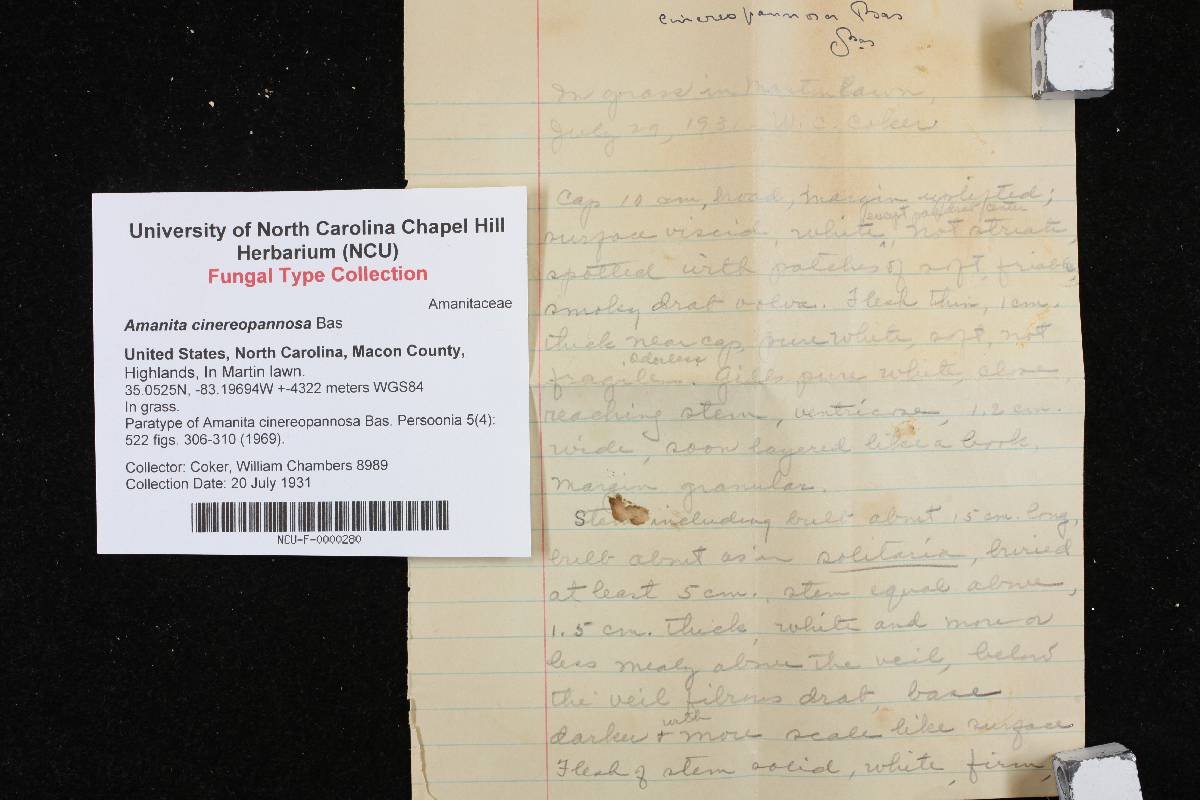 cinereopannosa Bas
Bas
In grass in Martin lawn,
July 20, 1931 W. C. Coker
Cap 10 cm, broad, margin uplifted;
except pale, center
surface viscid, white, not striate,
spotted with patches of soft, friable,
smoky drab volva. Flesh thin, 1 cm.
thick near cap, pure white, soft, not
odorless
fragile. Gills pure white, close,
reaching stem, ventricose, 1.2 cm.
wide, soon layered like a book.
Margin granular.
Stem including bulb about 15 cm. long,
bulb about as in solitaria, buried
at least 5 cm., stem equal above,
1.5 cm. thick, white and more or
less mealy above the veil, below
the veil fibrous drab, base
with
darker & more scale like surface
Flesh of stem solid, white, firm,
University of North Carolina Chapel Hill
Herbarium (NCU)
Fungal Type Collection
Amanitaceae
Amanita cinereopannosa Bas
United States, North Carolina, Macon County,
Highlands, In Martin lawn.
35.0525N, -83.19694W +-4322 meters WGS84
In grass.
Paratype of Amanita cinereopannosa Bas. Persoonia 5(4):
522 figs. 306-310 (1969).
Collector: Coker, William Chambers 8989
Collection Date: 20 July 1931
NCU-F-0000280